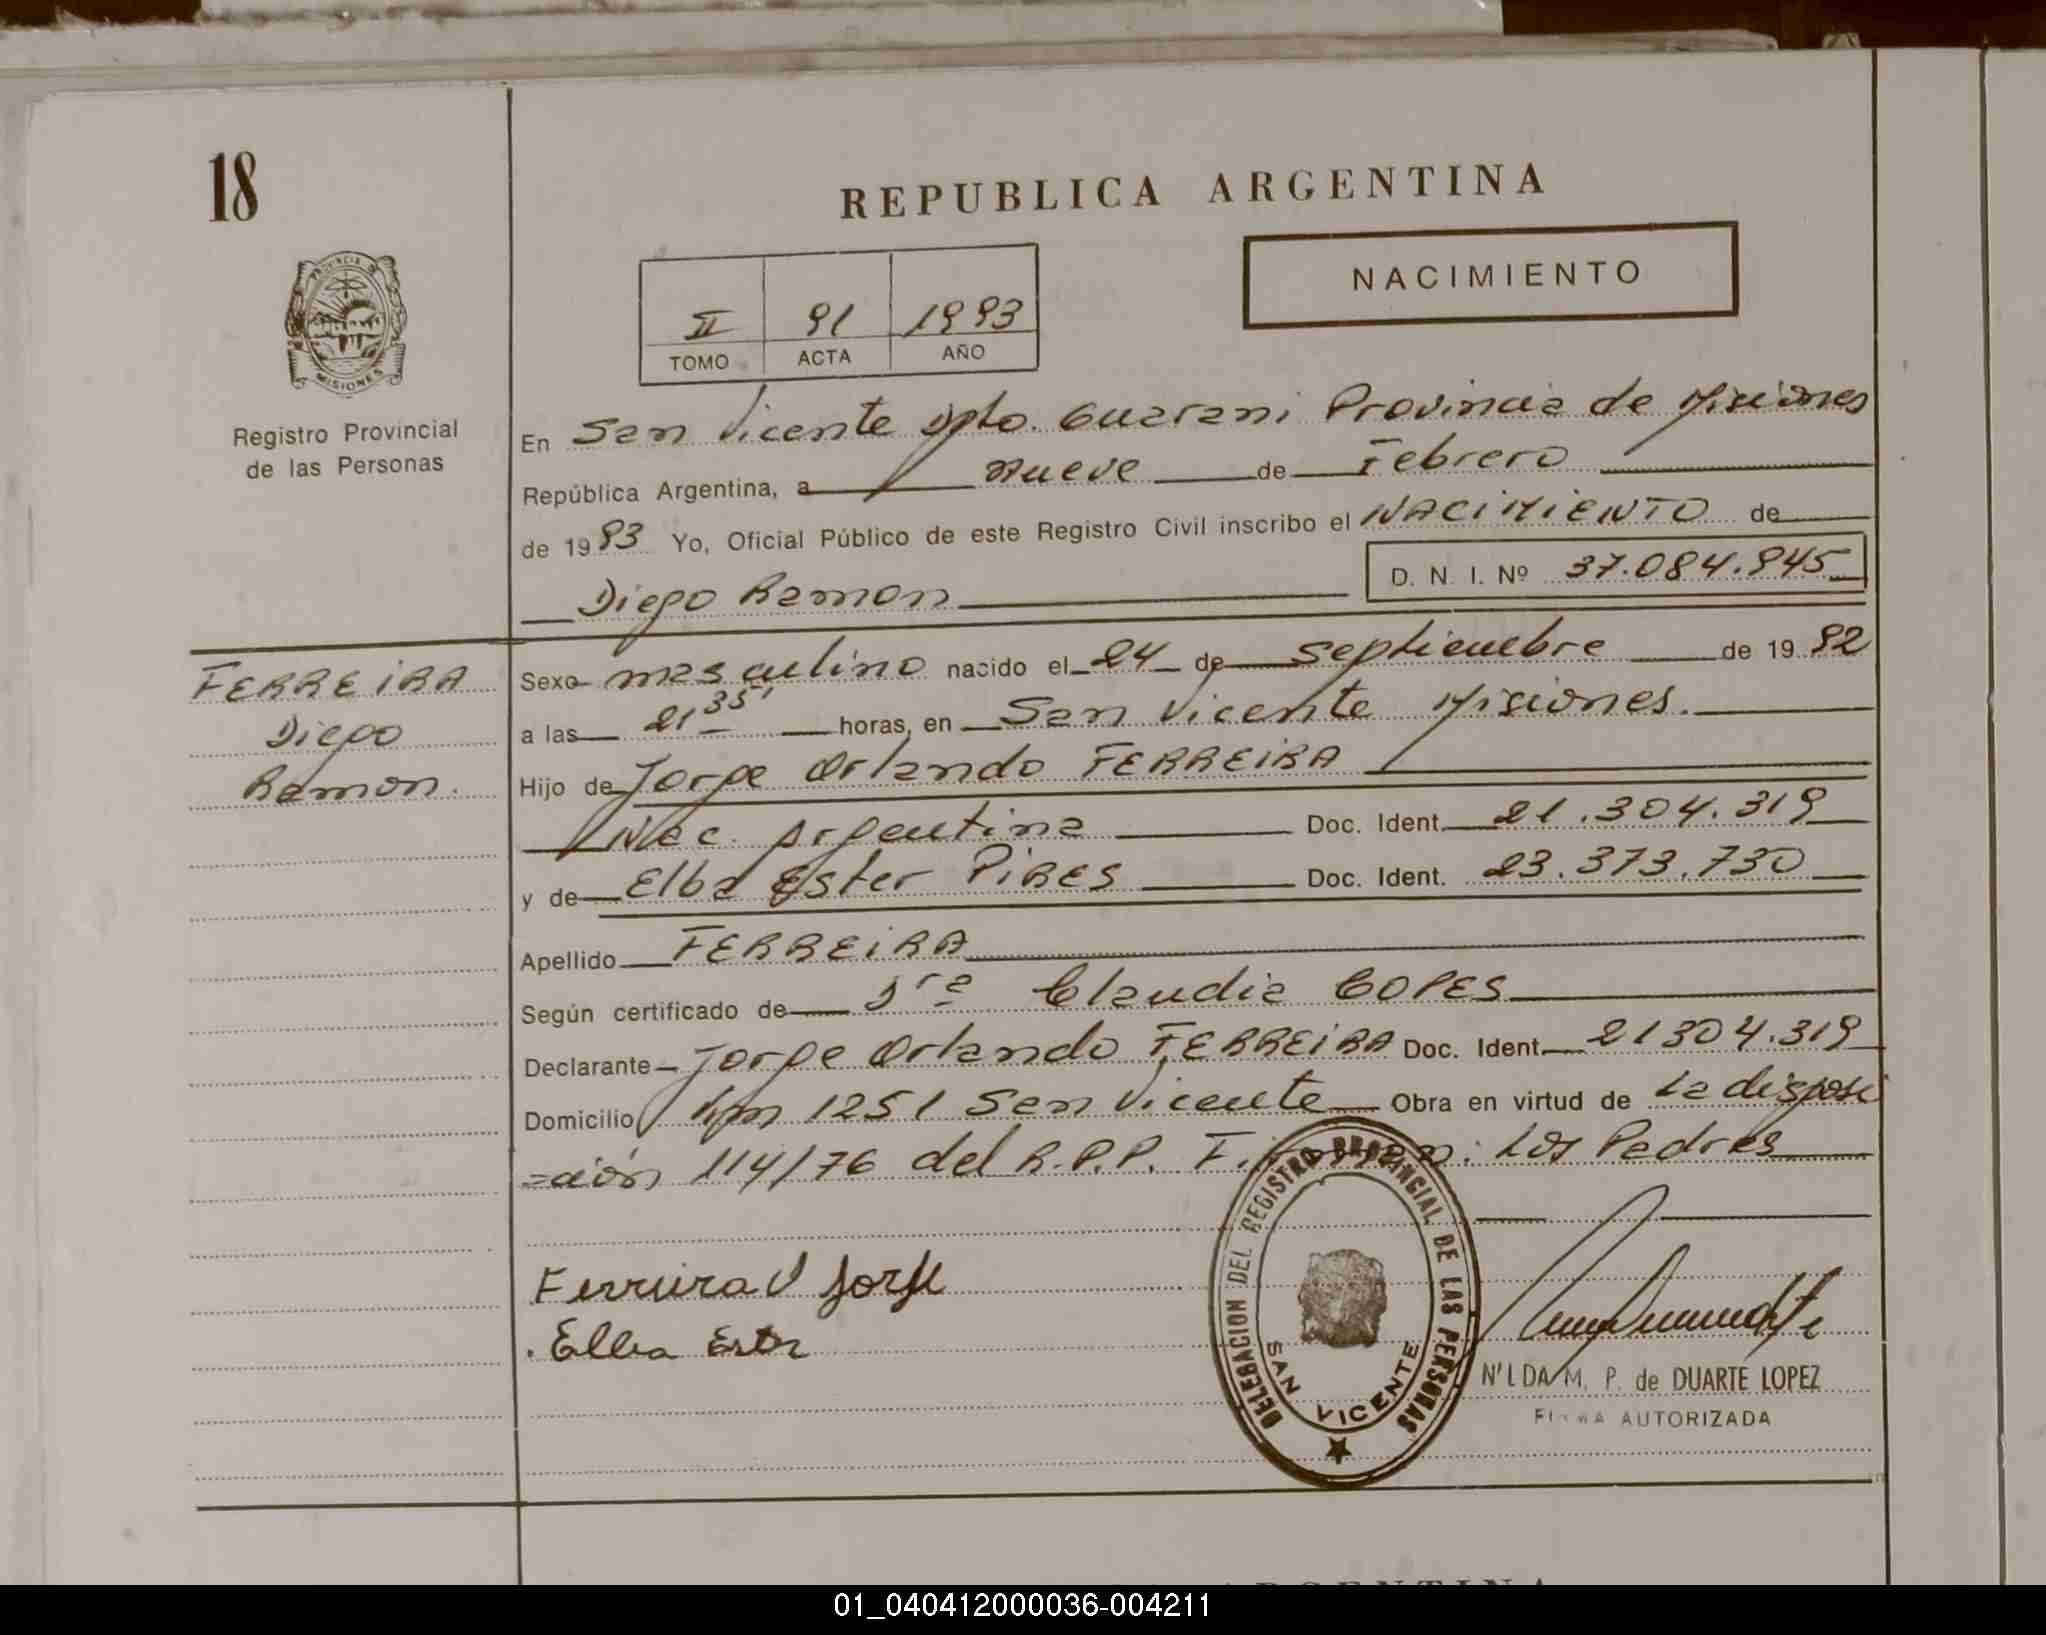 18
REPUBLICA ARGENTINA
NACIMIENTO
II 91 1993
TOMO ACTA AÑO
PROVINCIA DE
MISIONES
Registro Provincial
de las Personas
En San Vicente Dpto. Guarani Provincia de Misiones
República Argentina, a nueve de Febrero
de 1993 Yo, Oficial Público de este Registro Civil inscribo el NACIMIENTO de
Diego Ramon
D. N. I. Nº 37.084.945
FERREIRA
Diego
Ramon.
Sexo masculino nacido el 24 de Septiembre de 1992
a las 21 35' horas, en San Vicente Misiones.
Hijo de Jorge Orlando FERREIRA
Nac. Argentina Doc. Ident. 21.304.319
y de Elba Ester PIRES Doc. Ident. 23.373.730
Apellido FERREIRA
Según certificado de Dra Claudia COPES
Declarante Jorge Orlando FERREIRA Doc. Ident. 21304.319
Domicilio Km 1251 San Vicente Obra en virtud de La disposi
=ción 114/76 del R.P.P. Los Padres
Ferreira O Jorge
Elba Ester
DELEGACION DEL REGISTRO PROVINCIAL DE LAS PERSONAS
SAN VICENTE
N'LDA M. P. de DUARTE LOPEZ
FIRMA AUTORIZADA
01_040412000036-004211